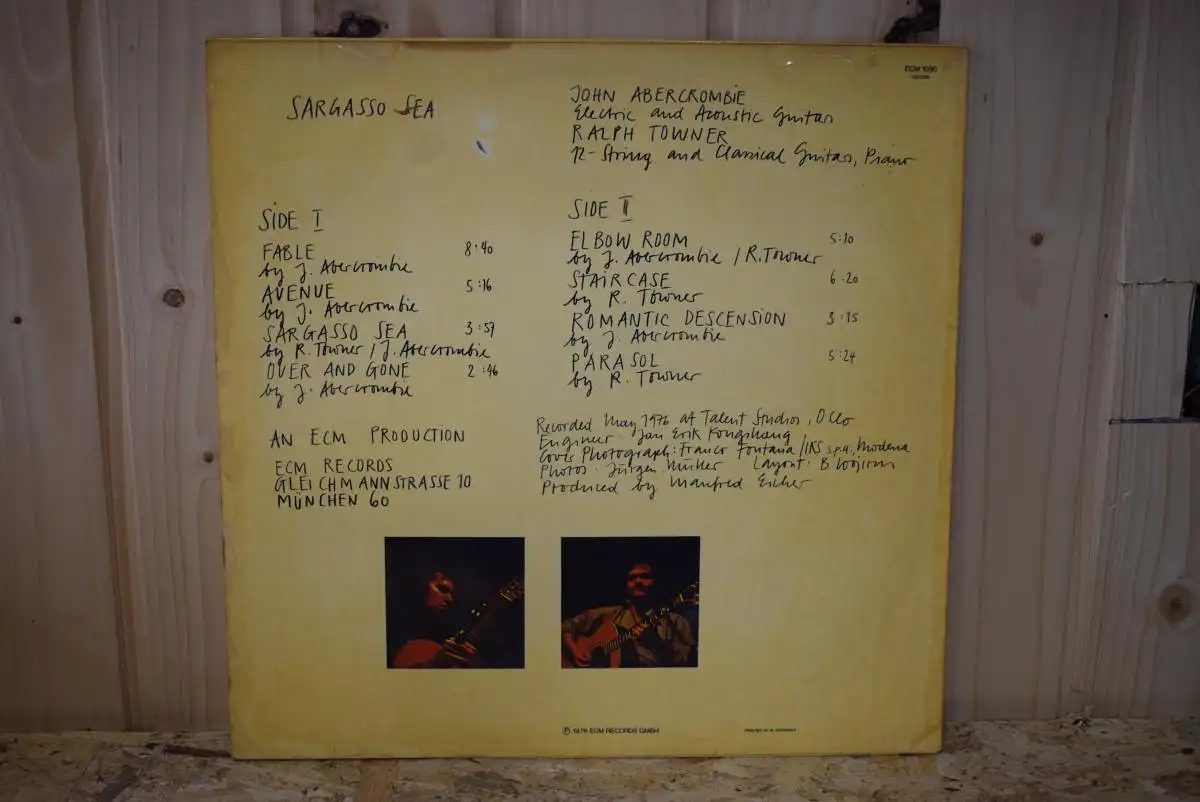 ECM 1080
SARGASSO SEA
JOHN ABERCROMBIE
Electric and Acoustic Guitar
RALPH TOWNER
12-String and Classical Guitars, Piano
SIDE I
FABLE 8:40
by J. Abercrombie
AVENUE 5:16
by J. Abercrombie
SARGASSO SEA 3:57
by R. Towner / J. Abercrombie
OVER AND GONE 2:46
by J. Abercrombie
SIDE II
ELBOW ROOM 5:10
by J. Abercrombie / R. Towner
STAIRCASE 6:20
by R. Towner
ROMANTIC DESCENSION 3:15
by J. Abercrombie
PARASOL 5:24
by R. Towner
AN ECM PRODUCTION
ECM RECORDS
GLEICHMANNSTRASSE 10
MÜNCHEN 60
Recorded May 1976 at Talent Studios, Oslo
Engineer: Jan Erik Kongshaug
Cover Photograph: Franco Fontana / IKS s.p.a. Modena
Photos: Jürgen Müller Layout: B. Wojirsch
Produced by Manfred Eicher
℗ 1976 ECM RECORDS GMBH
PRINTED IN W. GERMANY